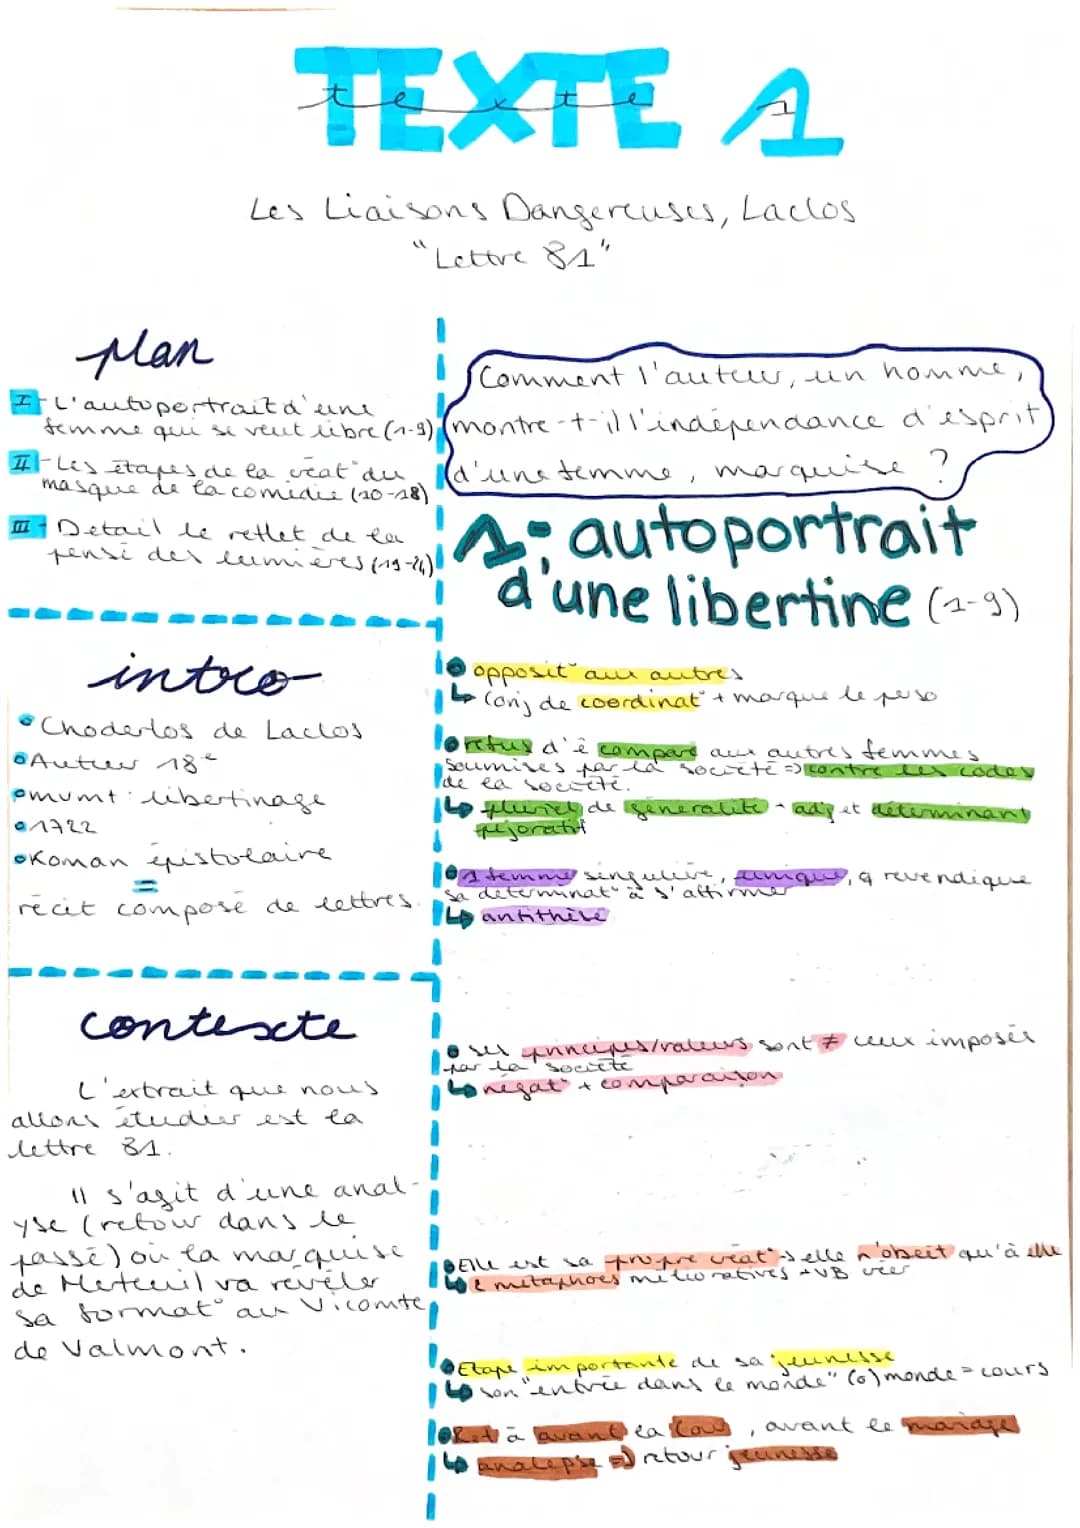 TEXTE 1
texte 1
Les Liaisons Dangereuses, Laclos
"Lettre 81"
plan
I - L'autoportrait d'une
femme qui se veut libre (1-9)
II - Les étapes de la créat° du
masque de la comédie (10-18)
III - Detail le reflet de la
pensé des lumières (19-24)
intro
Choderlos de Laclos
Auteur 18e
mvmt : libertinage
1722
Roman épistolaire
=
récit composé de lettres.
contexte
L'extrait que nous
allons étudier est la
lettre 81.
Il s'agit d'une anal-
yse (retour dans le
passé) où la marquise
de Merteuil va révéler
sa format° au Vicomte
de Valmont.
Comment l'auteur, un homme,
montre-t-il l'indépendance d'esprit
d'une femme, marquise ?
1- autoportrait
d'une libertine (1-9)
opposit° aux autres
↳ Conj de coordinat° + marque le perso
refus d'ê comparé aux autres femmes
soumises par la société => contre les codes
de la société.
↳ pluriel de généralité - adj et déterminant
péjoratif
1 femme singulière, unique, q revendique
sa déterminat° à s'affirmer
↳ antithèse
ses principes/valeurs sont ≠ ceux imposés
par la société
↳ négat° + comparaison
Elle est sa propre créat° -> elle n'obéit qu'à elle
↳ métaphores mélioratives + VB créer
Etape importante de sa jeunesse
↳ son "entrée dans le monde" (6) monde = cours
à avant la Cour, avant le mariage
↳ analepse => retour jeunesse